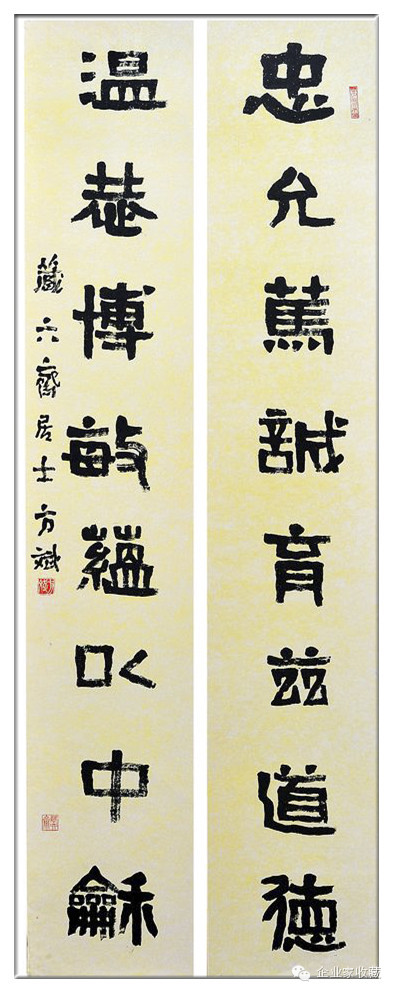 忠允蕙誠育兹道德
温恭博敏蘊以中龢
藏六齋居士方斌
企业家收藏